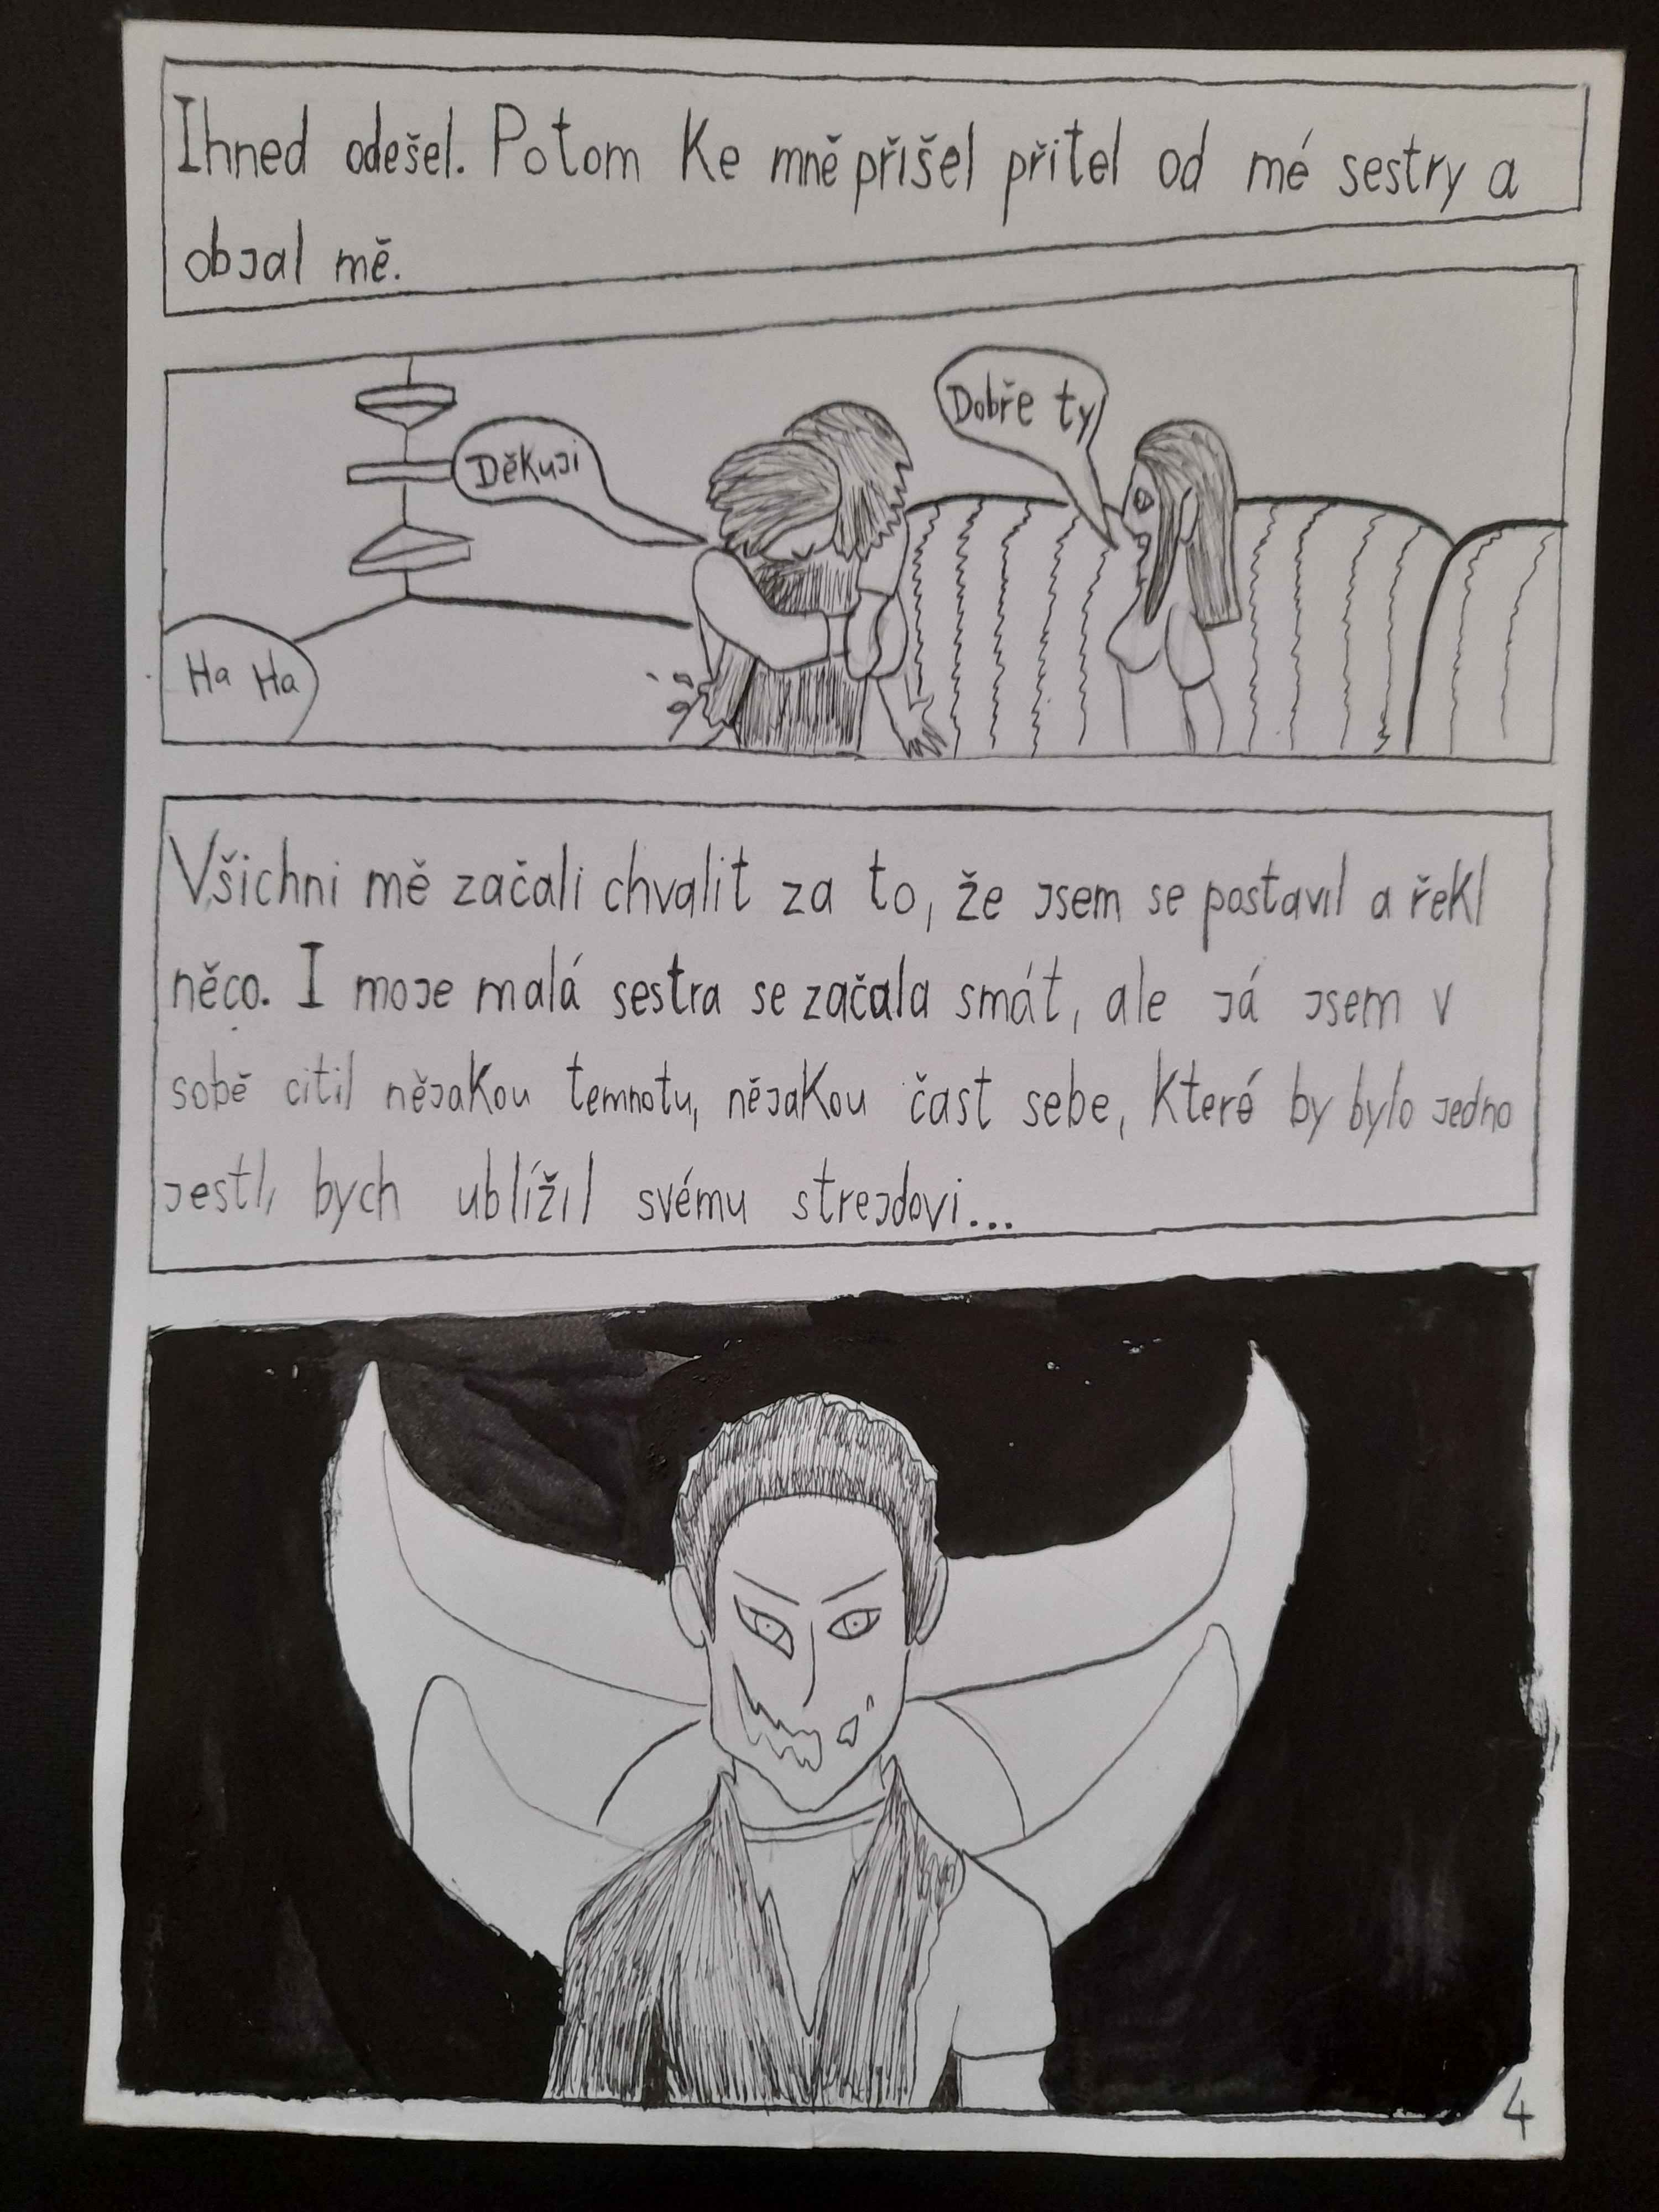 Ihned odešel. Potom ke mně přišel přítel od mé sestry a
objal mě.
Děkuji
Dobře ty
Ha Ha
Všichni mě začali chvalit za to, že jsem se postavil a řekl
něco. I moje malá sestra se začala smát, ale já jsem v
sobě citil nějakou temnotu, nějakou čast sebe, které by bylo jedno
jestli bych ublížil svému strejdovi...
4